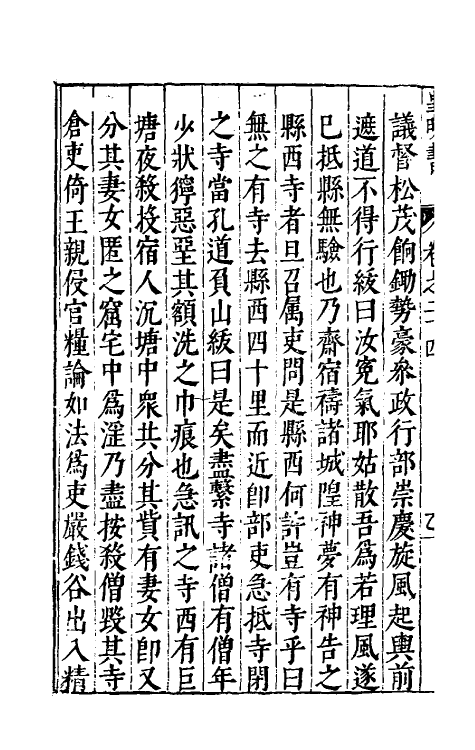 議督松茂餉鋤勢豪叅政行部崇慶旋風起輿前
遮道不得行紱曰汝寃氣耶姑散吾爲若理風遂
已抵縣無驗也乃齋宿禱諸城隍神夢有神告之
縣西寺者旦召属吏問是縣西何許豈有寺乎曰
無之有寺去縣西四十里而近卽部吏急抵寺閉
之寺當孔道負山紱曰是矣盡繫寺諸僧有僧年
少狀獰惡堊其額洗之巾痕也急訊之寺西有巨
塘夜殺投宿人沉塘中衆共分其貲有妻女卽又
分其妻女匿之窟宅中爲滛乃盡按殺僧毀其寺
倉吏倚王親侵官糧論如法爲吏嚴錢谷出入精
皇明書
卷之二十四